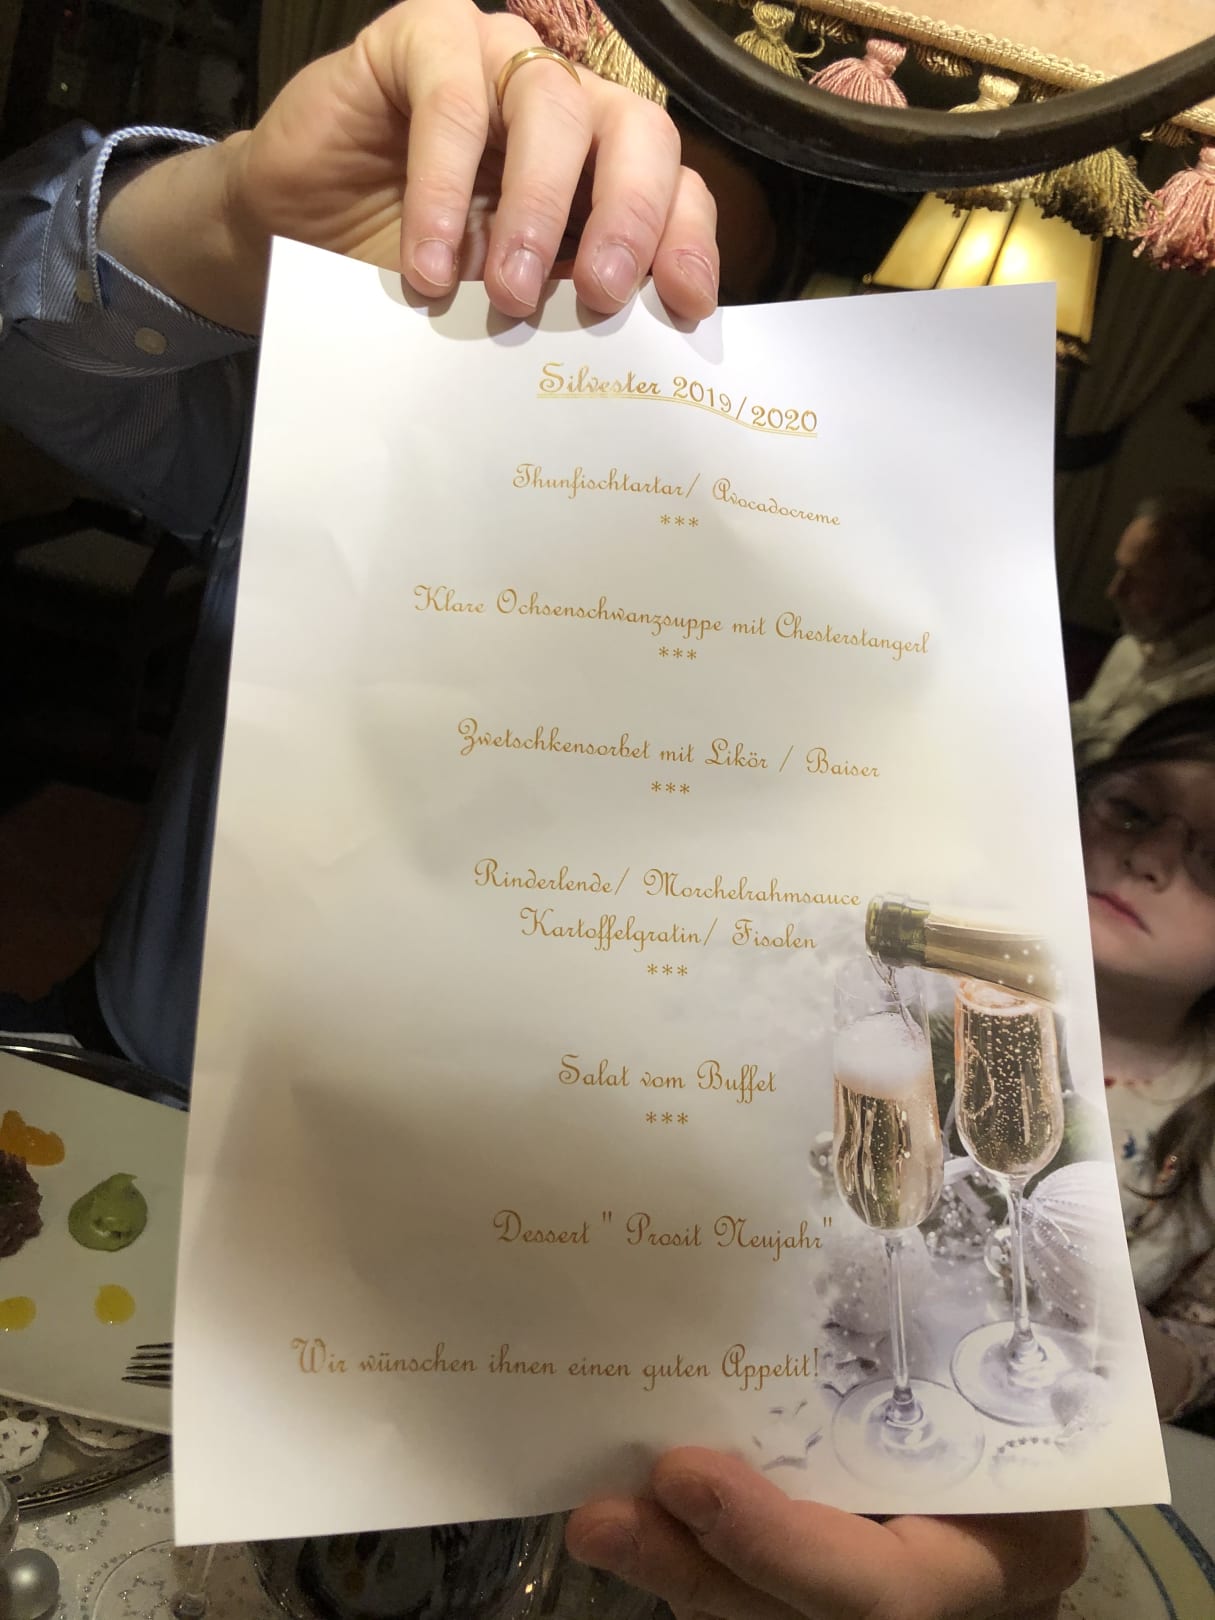 Silvester 2019/2020
Thunfischtartar/ Avocadocreme
***
Klare Ochsenschwanzsuppe mit Chesterstangerl
***
Zwetschkensorbet mit Likör / Baiser
***
Rinderlende/ Morchelrahmsauce
Kartoffelgratin/ Fisolen
***
Salat vom Buffet
***
Dessert " Prosit Neujahr"
Wir wünschen ihnen einen guten Appetit!